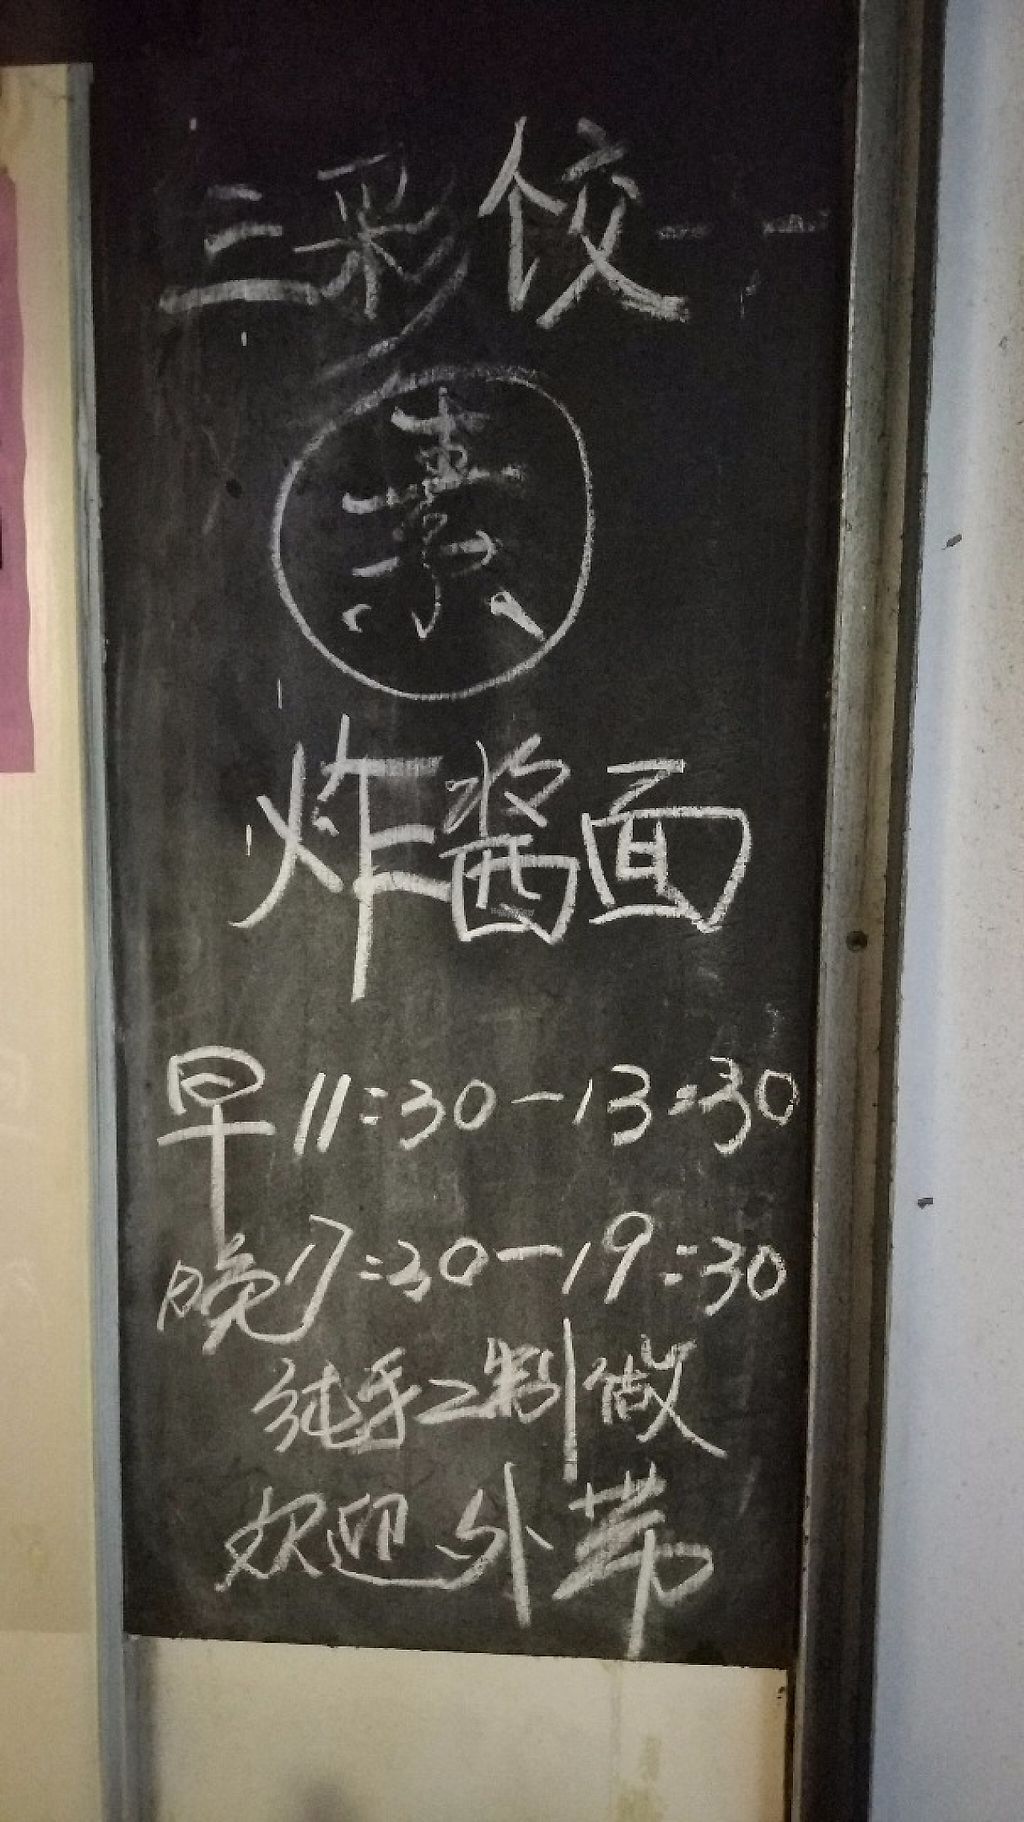 三彩饺
素
炸酱面
早11:30-13:30
晚17:30-19:30
纯手工制做
欢迎外带